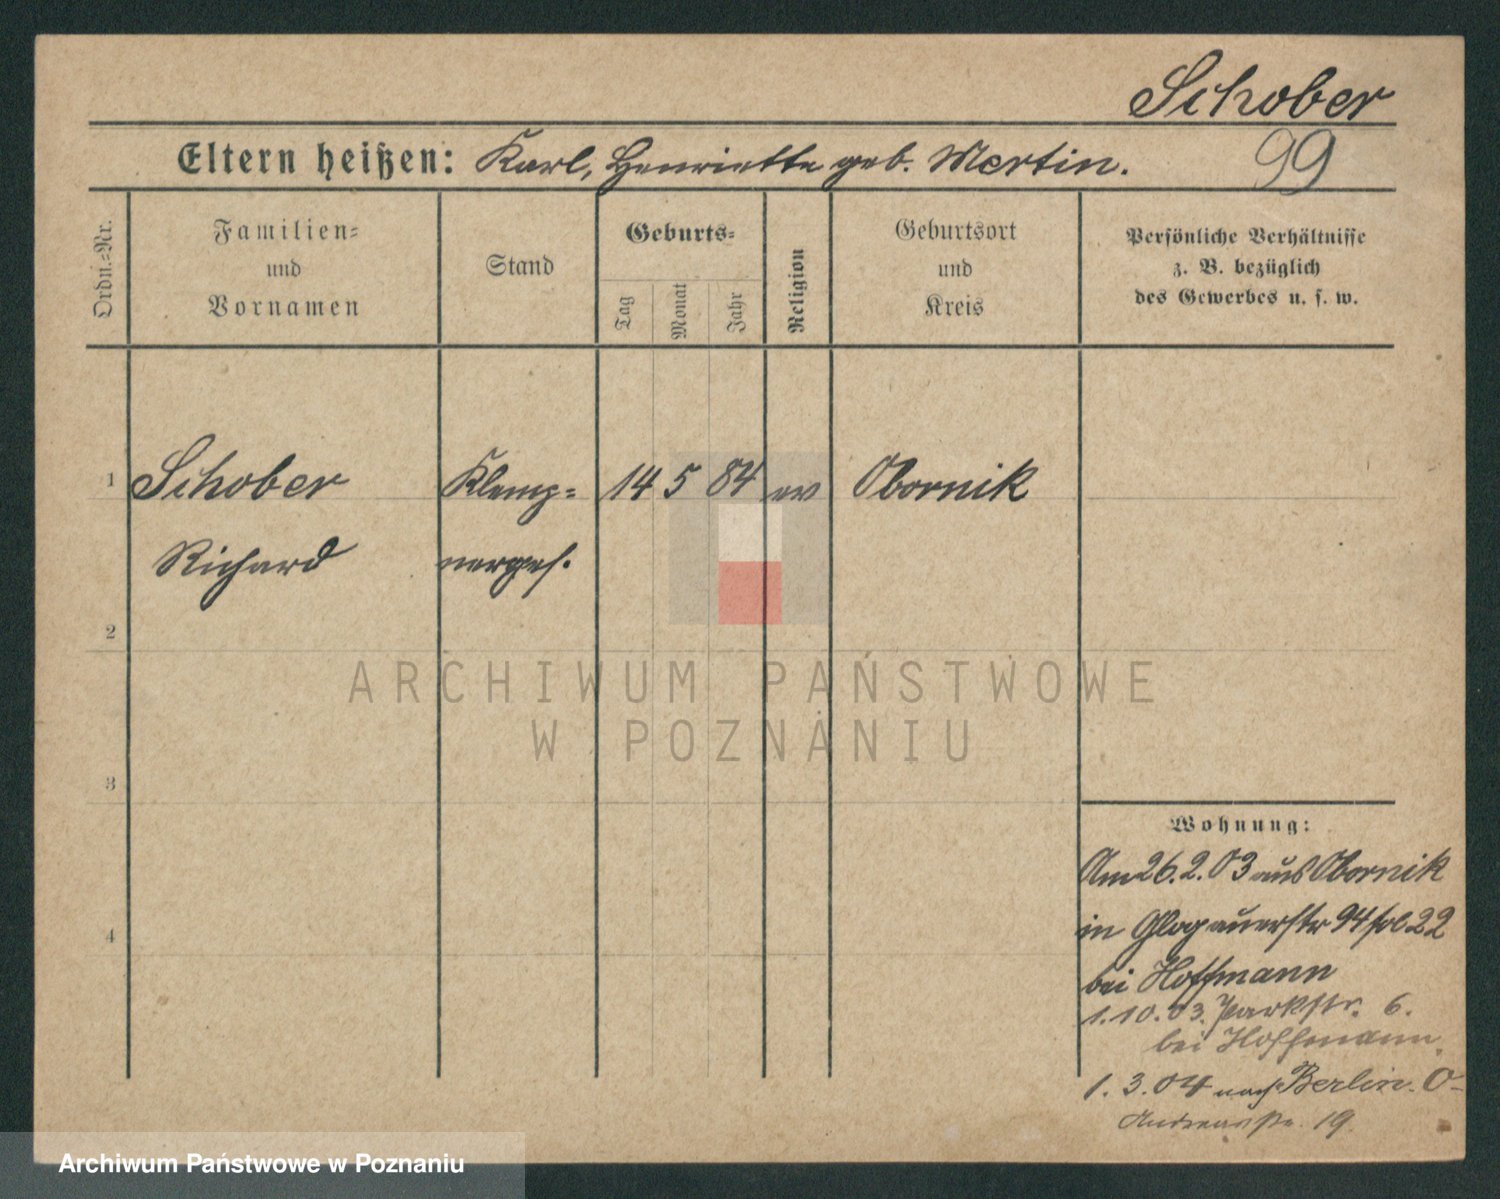 Schober
Eltern heißen: Karl, Henriette geb. Mertin. 99
Ordn.=Nr.
Familien=
und
Vornamen
Stand
Geburts=
Tag
Monat
Jahr
Religion
Geburtsort
und
Kreis
Persönliche Verhältnisse
z. B. bezüglich
des Gewerbes u. s. w.
1 Schober Klemp= 14 5 84 ev Obornik
Richard nerges.
2
ARCHIWUM PAŃSTWOWE
W POZNANIU
3
Wohnung:
Am 26.2.03 aus Obornik
4
in Glogauerstr 94 22
bei Hoffmann
1.10.03. Parkstr. 6.
bei Hoffmann.
1.3.04 nach Berlin. O-
Andreasstr. 19.
Archiwum Państwowe w Poznaniu